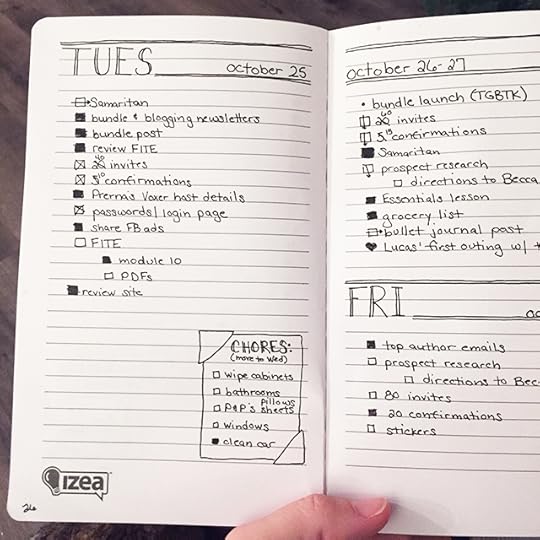 TUES
october 25
Samaritan
bundle & blogging newsletters
bundle post
review FITE
40
20 invites
10
5 confirmations
Prerna's Voxer host details
passwords/login page
share FB ads
FITE
module 10
PDFs
review site
CHORES:
(move to Wed)
wipe cabinets
bathrooms
pillows
P&P's sheets
windows
clean car
izea
26
october 26-27
bundle launch (TGBTK)
60
20 invites
15
5 confirmations
Samaritan
prospect research
directions to Becca
Essentials lesson
grocery list
bullet journal post
Lucas' first outing w/
FRI
top author emails
prospect research
directions to Bec
80 invites
20 confirmations
stickers